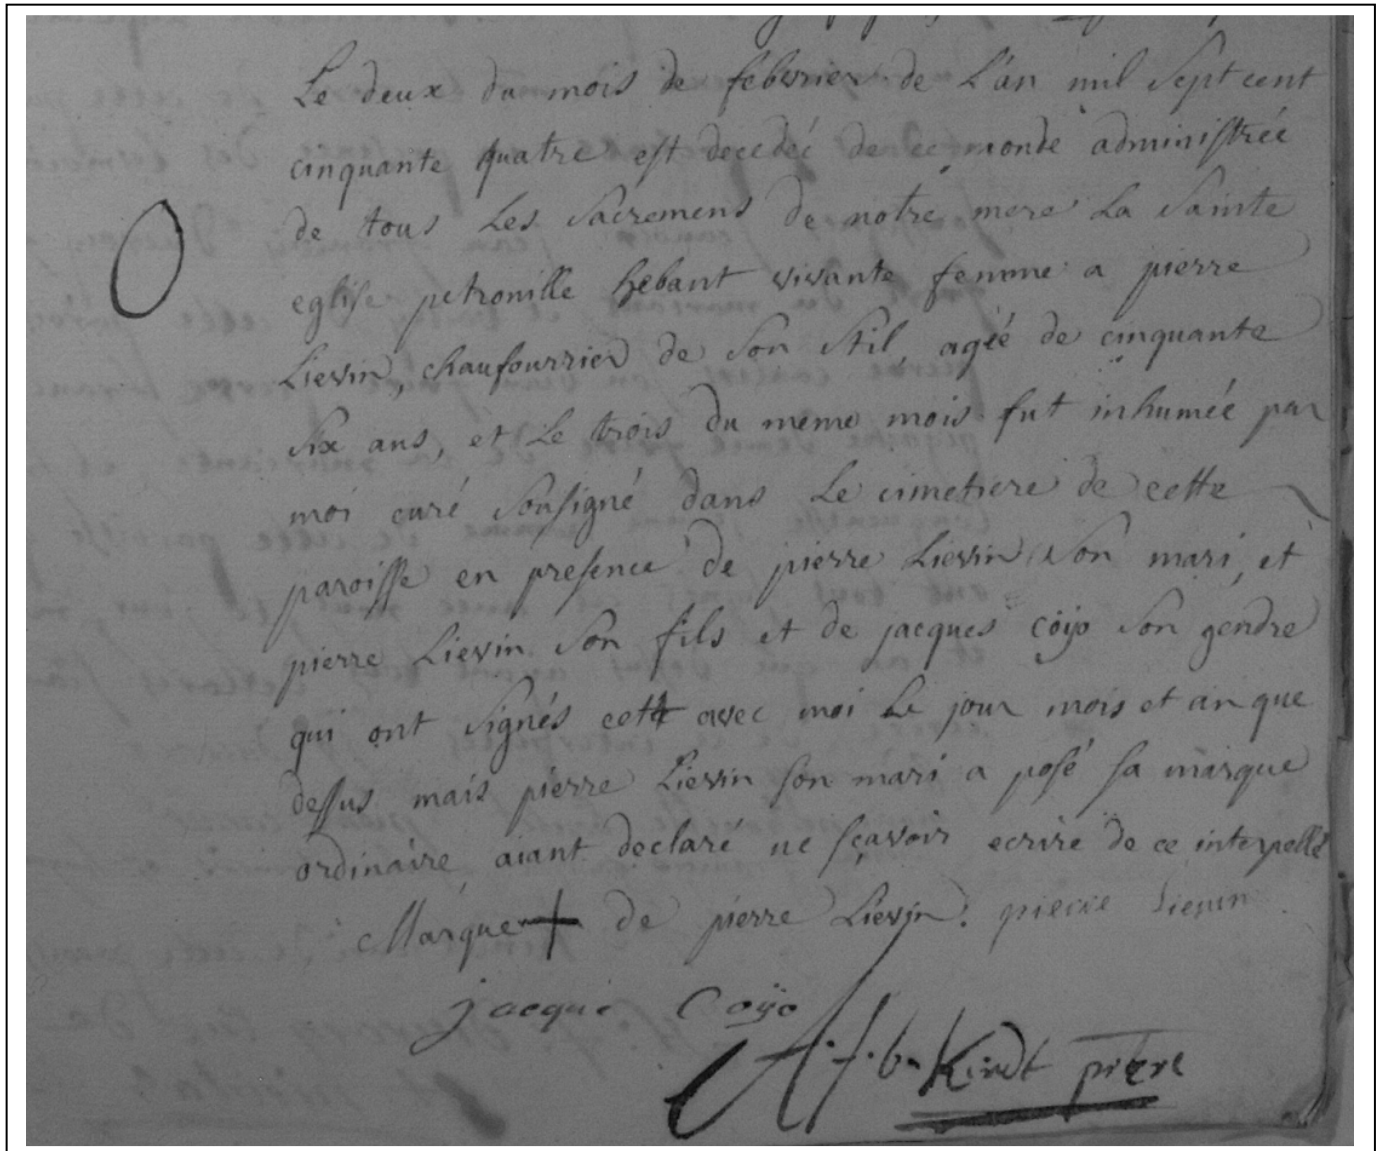 Le deux du mois de febvrier de L'an mil Sept cent
cinquante quatre est decedeé de ce monde administrée
de tous Les Sacremens de notre mere La Sainte
eglise petronille hebant vivante femme a pierre
Lievin, chaufourrier de Son Stil, ageé de cinquante
Six ans, et Le trois du meme mois fut inhumée par
moi curé Sousigné dans Le cimetiere de cette
paroisse en presence de pierre Lievin Son mari, et
pierre Lievin Son fils et de jacques Coÿo Son gendre
qui ont Signés avec moi Le jour mois et an que
dessus mais pierre Lievin son mari a posé sa marque
ordinaire, aiant declaré ne sçavoir ecrire de ce interpellé
Marque + de pierre Lievin. pierre Lievin
jacque Coÿo
Kindt prêtre